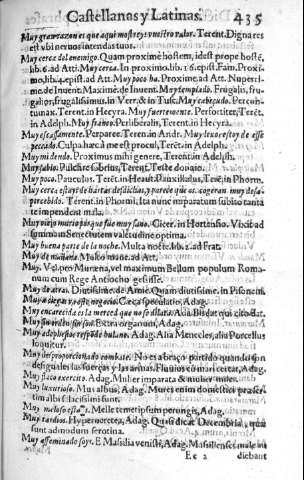 Castellanas y Latinas. 435
Muy gran razon es que aqui mostreys vuestro valor. Terent. Digna res
est vbi neruos intendas tuos.
Muy cerca del enemigo. Quam proximè hostem, idest prope hostē,
lib. 6. ad Atti. Muy cerca. In proximo. lib. 16. epist. Fam. Proxi-
mo, lib. 4. epist. ad Att. Muy poco ha. Proxime. ad Att. Nuperri-
me. de Inuent. Maximè. de Inuent. Muy templado. Frugalis, fru-
galior, frugalissimus. in Verr. & in Tusc. Muy cabeçudo. Percon-
tumax. Terent. in Hecyra. Muy fuertemente. Perfortiter, Terē.
in Adelph. Muy franco. Perliberalis, Teren. in Hecyra.
Muy escasamente. Perparce. Teren. in Andr. Muy lexos estoy de esse
peccado. Culpa hæc à me est procul, Terēt. in Adelph.
Muy mi deudo. Proximus mihi genere, Terent. in Adelph.
Muy sabio. Pulchrè sobrius, Terent. Teste donato.
Muy poco. Pauxillus. Terēt. in Heaut. Pauxillulus, Terē. in Phorm.
Muy cerca estays de hartas desdichas, y pareceos que os cogeran muy desa-
percebido. Terent. in Phorm. Ita nunc imparatum subito tanta
te impendent mala.
Muy viejo murio pues que fue muy sano. Cicer. in Hortensio. Vixit ad
summam senectutem valetudine optima.
Muy buena parte de la noche. Multa nocte. lib. 2. ad Frat.
Muy de mañana. Multo mane. ad Att.
Muy. Vel. pro Murena, vel maximum Bellum populum Roma-
num cum Rege Antiocho gessisse.
Muy de atras. Diutissime. de Amic. Quam diutissime. in Pisonem.
Muy a ciegas va este negocio. Cæca speculatio, Adag.
Muy encarecida es la merced que no se dilata. Adag. Bis dat qui cito dat.
Extra organum, Adag.
Adag. Alia Menecles, alia Porcellus
loquitur.
Muy desproporcionado combate. No es abraço partido quando son
desiguales las fuerças y las armas. Fluuius cum mari certat, Adag.
Muy flaco exercito. Adag. Mulier imparata & mulier miles.
Muy luxurioso. Mus albus, Adag. Mures enim domestici præser-
tim albi salacissimi sunt.
Melle temet ipsum perungis, Adag.
Muy tardios. Hyperuoretea, Adag. Quasi dicat Decembria, quia
sunt admodum serotina.
Muy afeminado soys. E Massilia venisti, Adag. Massilienses male au-
Ee 2 diebant